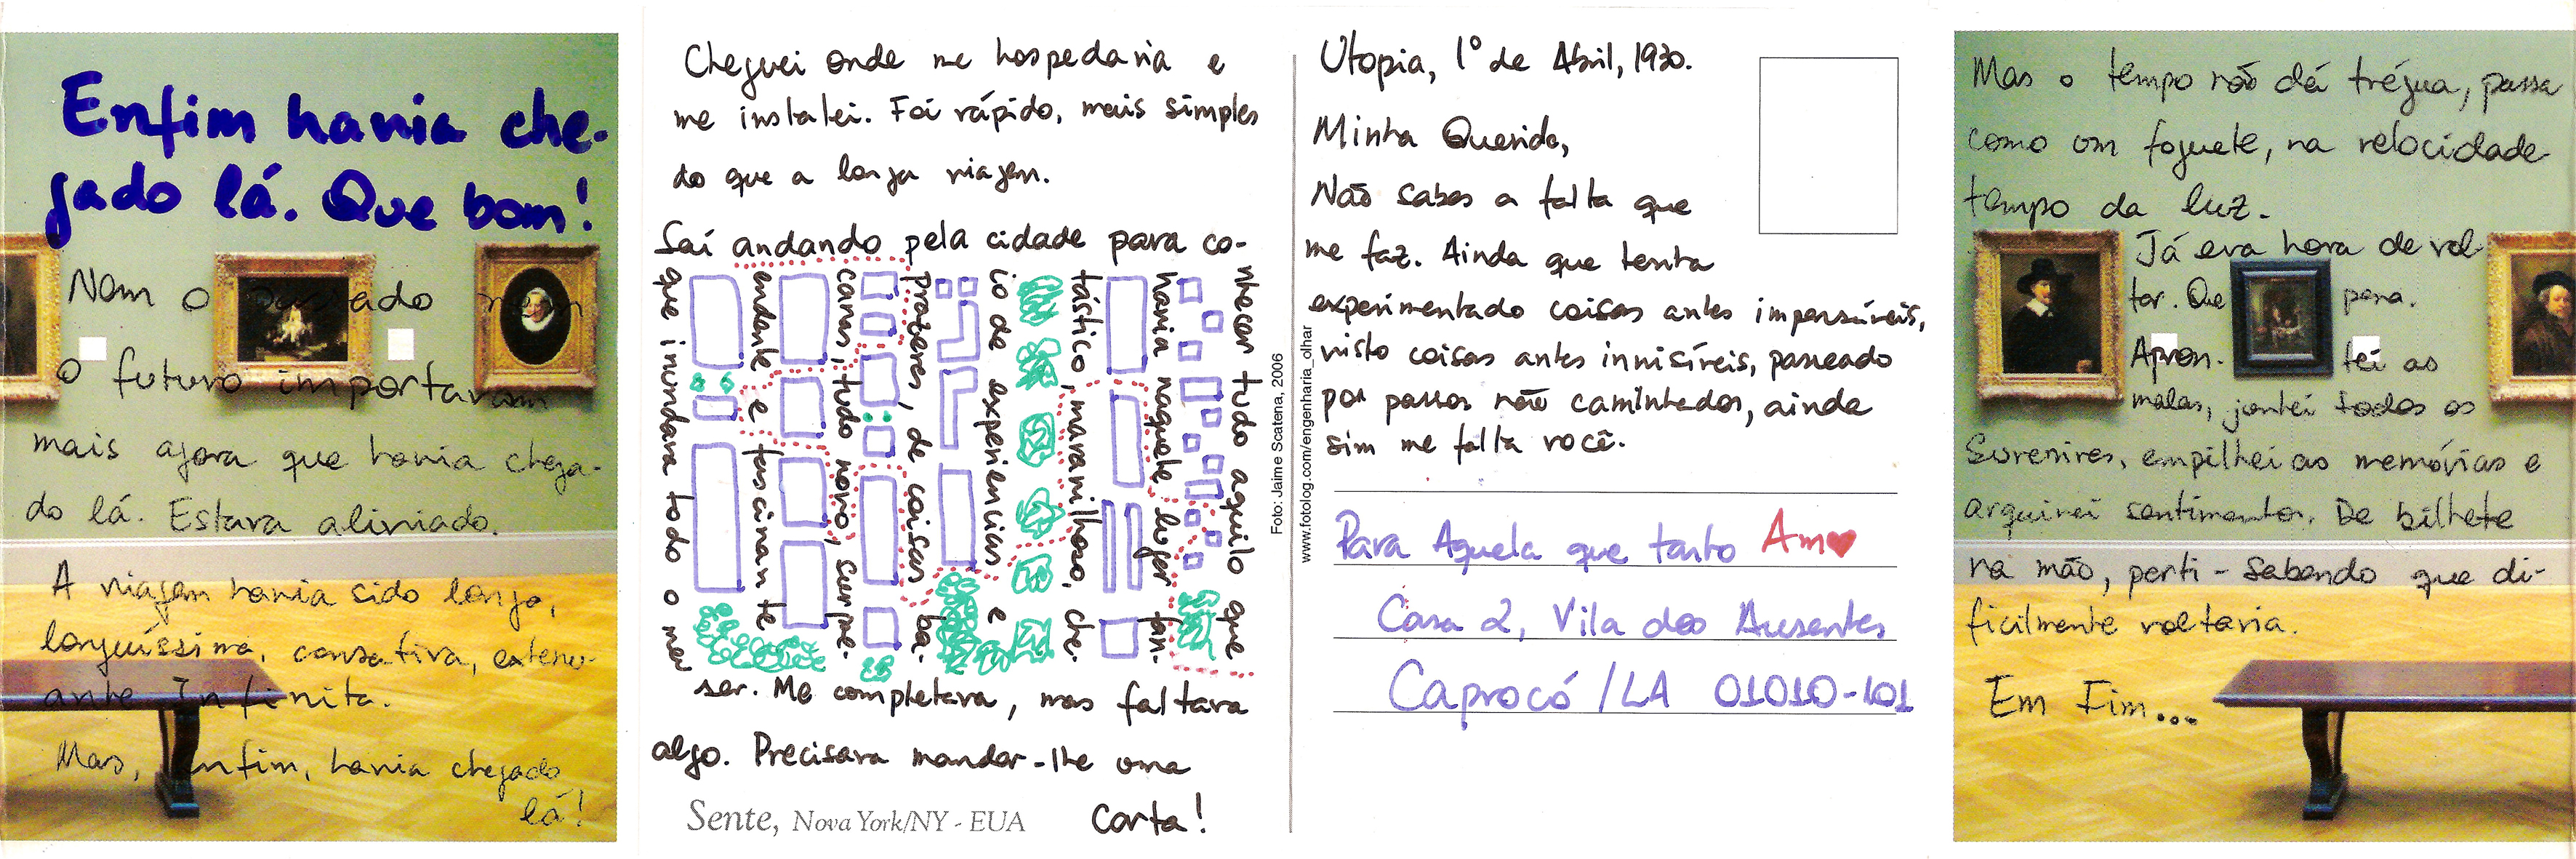 Enfim havia che-
gado lá. Que bom!
Nem o passado nem
o futuro importavam
mais agora que havia chega-
do lá. Estava aliviado.
A viagem havia sido longa,
longuíssima, cansativa, extenu-
ante. Infinita.
Mas, enfim, havia chegado
lá!
Cheguei onde me hospedaria e
me instalei. Foi rápido, mais simples
do que a longa viagem.
Saí andando pela cidade para co-
nhecer tudo aquilo que
havia naquele lugar fan-
tástico, maravilhoso, che-
io de experiencias e
prazeres, de coisas ba-
canas, tudo novo, surpre-
endente e fascinante
que inundava todo o meu
ser. Me completava, mas faltava
algo. Precisava mandar-lhe uma
Carta!
Sente, Nova York/NY - EUA
Foto: Jaime Scatena, 2006
www.fotolog.com/engenharia_olhar
Utopia, 1º de Abril, 1930.
Minha Querida,
Não sabes a falta que
me faz. Ainda que tenha
experimentado coisas antes impensáveis,
visto coisas antes invisíveis, passeado
por passos não caminhados, ainda
sim me falta você.
Para Aquela que tanto Am♥
Casa 2, Vila dos Ausentes
Caprocó /LA 01010-101
Mas o tempo não dá trégua, passa
como um foguete, na velocidade
tempo da luz.
Já era hora de vol-
tar. Que pena.
Apron-tei as
malas, juntei todos os
Suvenires, empilhei as memórias e
arquivei sentimentos. De bilhete
na mão, parti - sabendo que di-
ficilmente voltaria.
Em Fim...